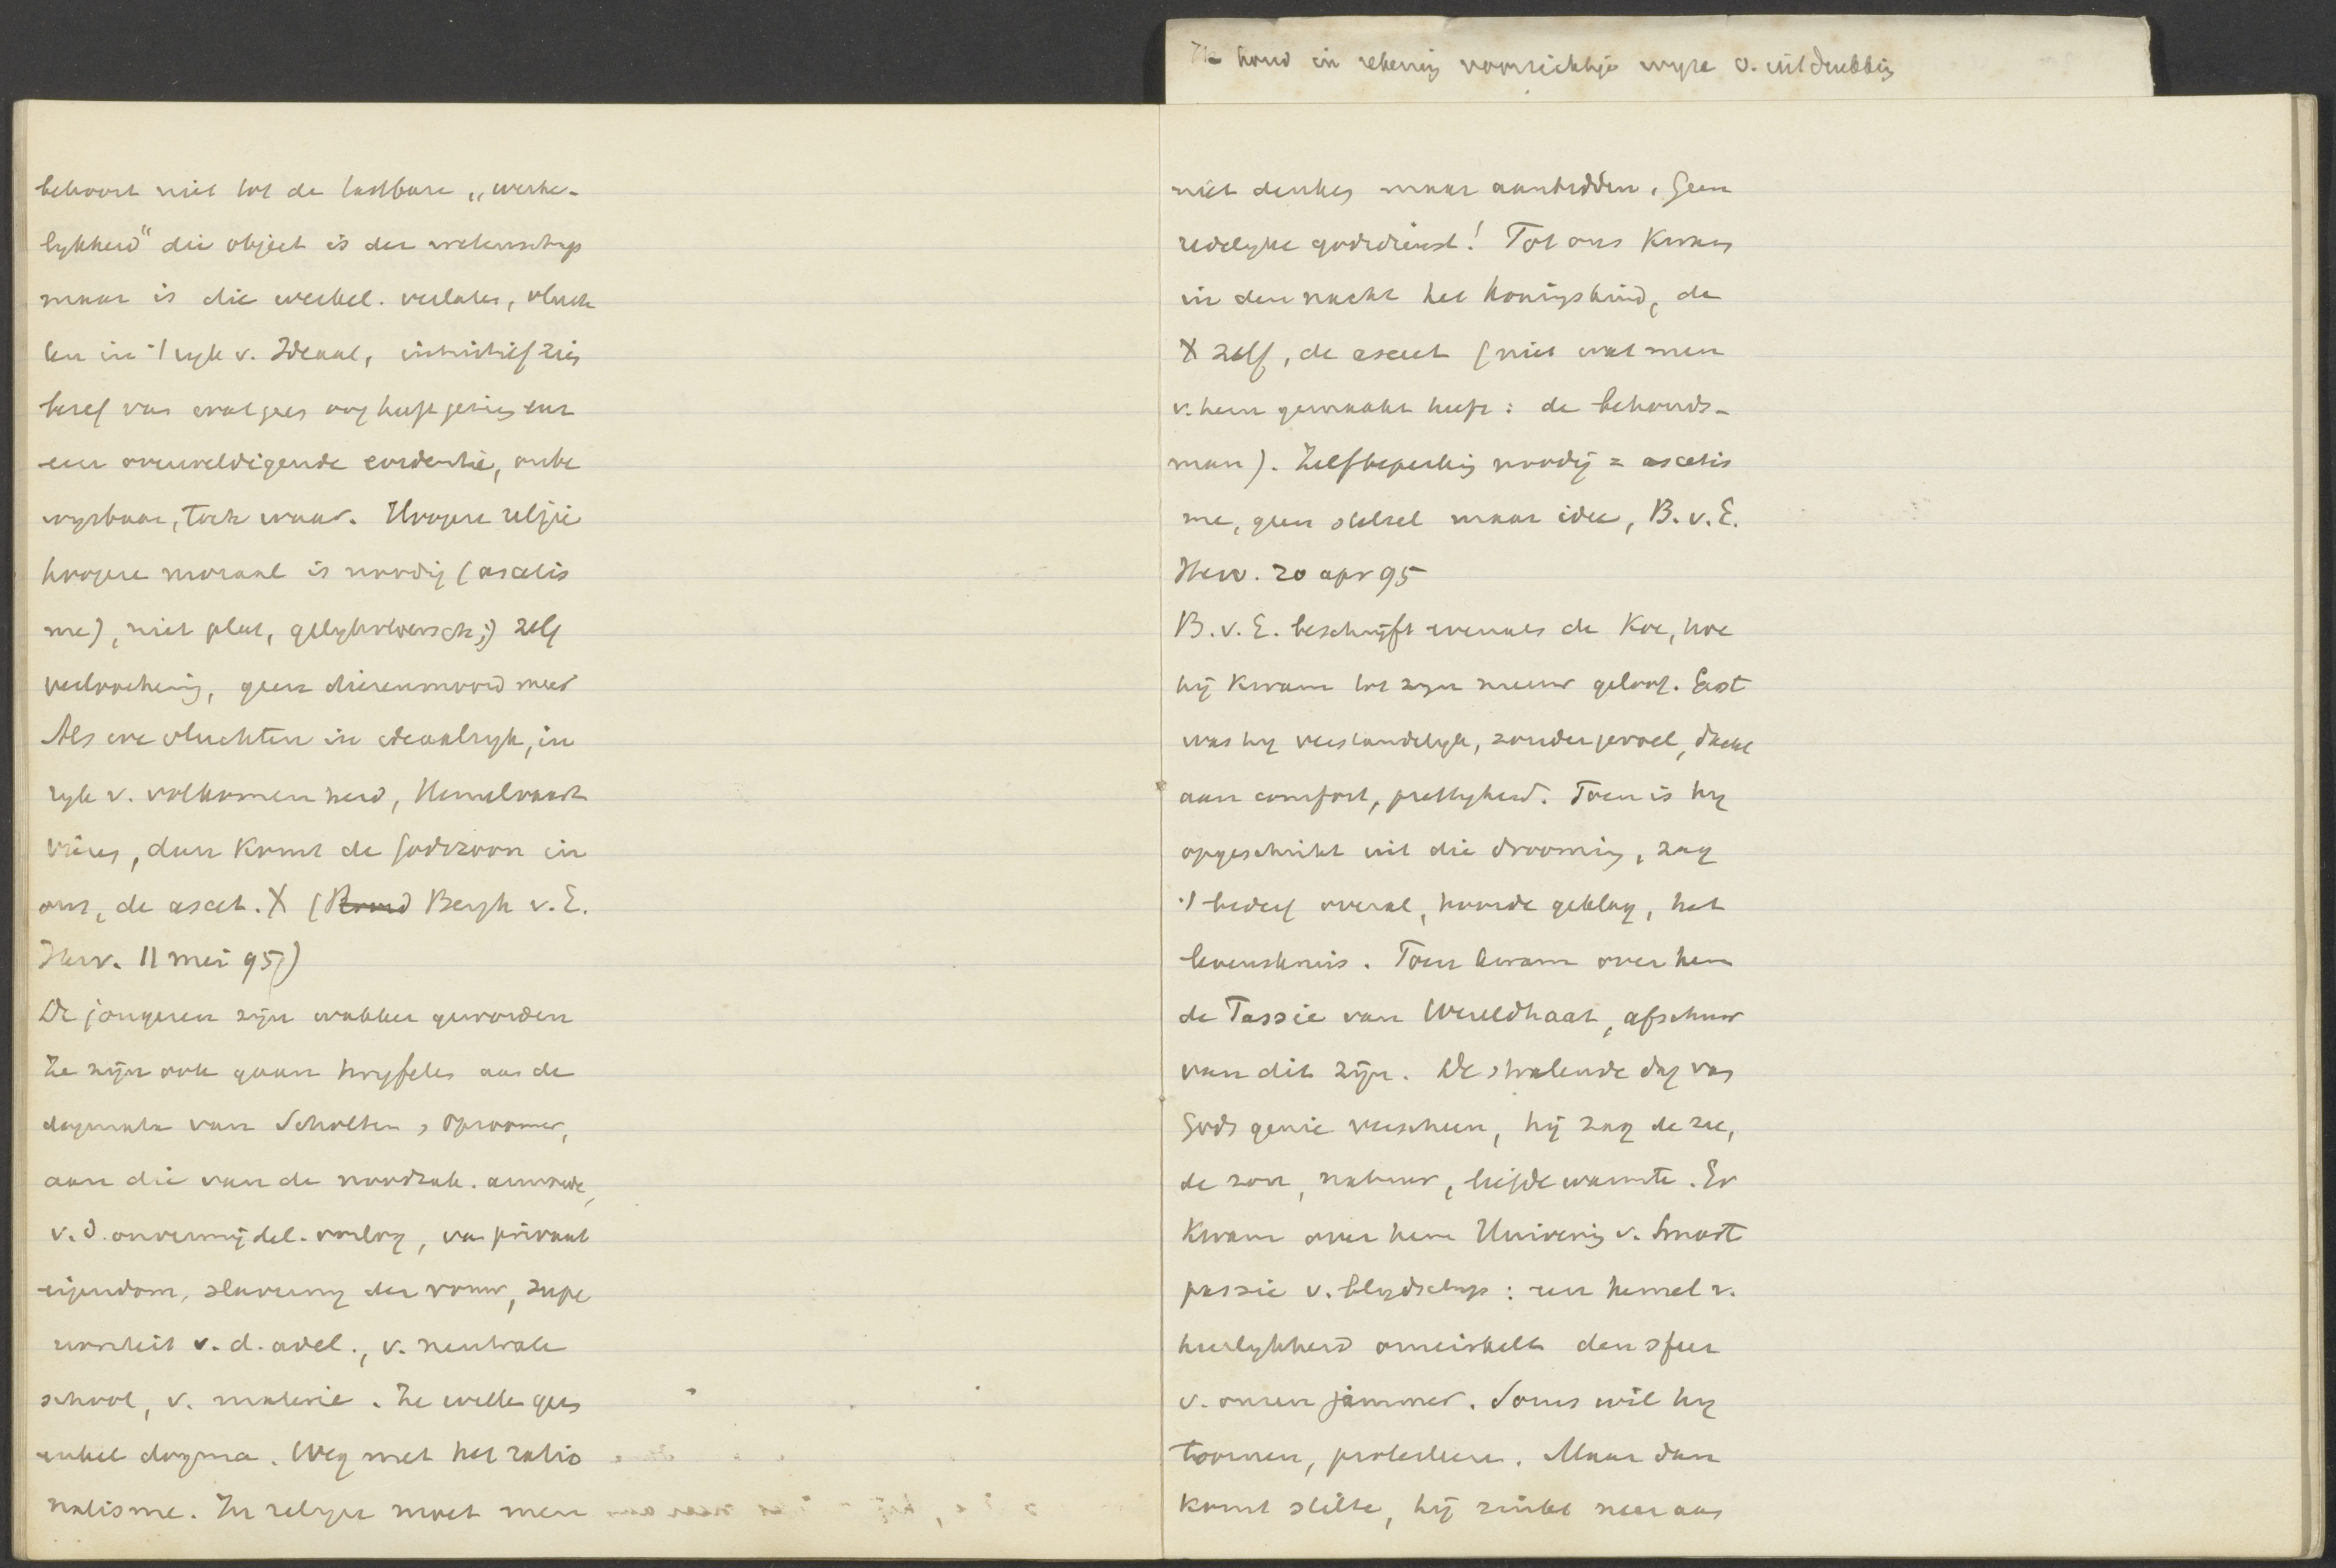 Ik houd in rekening voorzichtige wyze v. uitdrukking
behoort niet tot de tastbare „werke-
lykheid" die object is der wetenschap
maar is die werkel. verlaten, vluch
ten in 't ryk v. Ideaal, intuitief zien
besef van wat geen oog heeft gezien met
een overweldigende evidentie, onbe
wysbaar, toch waar. Hoogere religie
hoogere moraal is noodig (ascetis
me), niet plat, gelykvloersch; zelf
verloochening, geen dierenmoord meer
Als we vluchten in ideaalryk, in
ryk v. volkomenheid, Hemelvaart
vieren, dan komt de Godszoon in
ons, de asceet. X ( Bergh v. E.
Herv. 11 mei 95)
De jongeren zijn wakker geworden
Ze zijn ook gaan twyfelen aan de
dogmata van Scholten, Opzoomer,
aan die van de noodzak. armoede,
v. d. onvermijdel. oorlog, van privaat
eigendom, slaverny der vrouw, supe
rioriteit v. d. adel., v. neutrale
school, v. materie. Ze willen geen
enkel dogma. Weg met het ratio
nalisme. In religie moet men
niet denken maar aanbidden. Geen
redelyke godsdienst! Tot ons kwam
in den nacht het koningskind, de
X zelf, de asceet (niet wat men
v. hem gemaakt heeft: de behouds-
man). Zelfbeperking noodig = ascetis
me, geen stelsel maar idee, B. v. E.
Herv. 20 apr 95
B. v. E. beschrijft evenals de Koe, hoe
hij kwam tot zyn nieuw geloof. Eerst
was hy verstandelyk, zonder gevoel, dacht
aan comfort, prettigheid. Toen is hy
opgeschrikt uit die drooming, zag
't bederf overal, hoorde geklag, het
levenskruis. Toen kwam over hem
de Passie van Wereldhaat, afschuw
van dit zijn. De stralende dag van
Gods genie verscheen, hij zag de zee,
de zon, natuur, liefde warmte. Er
kwam over hem Huivering v. Smart
passie v. blydschap: een hemel v.
heerlykheid omcirkelt den sfeer
v. onzen jammer. Soms wil hy
toornen, protesteeren. Maar dan
komt stilte, hij zinkt neer aan